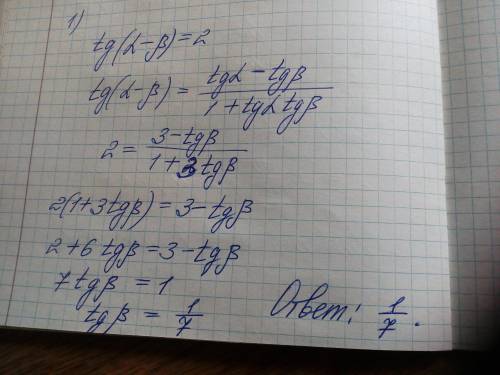 1)
tg(α-β)=2
tg(α-β) = (tgα - tgβ)/(1 + tgα tgβ)
2 = (3-tgβ)/(1+3tgβ)
2(1+3tgβ) = 3-tgβ
2+6tgβ = 3-tgβ
7tgβ = 1
tgβ = 1/7 Ответ: 1/7.